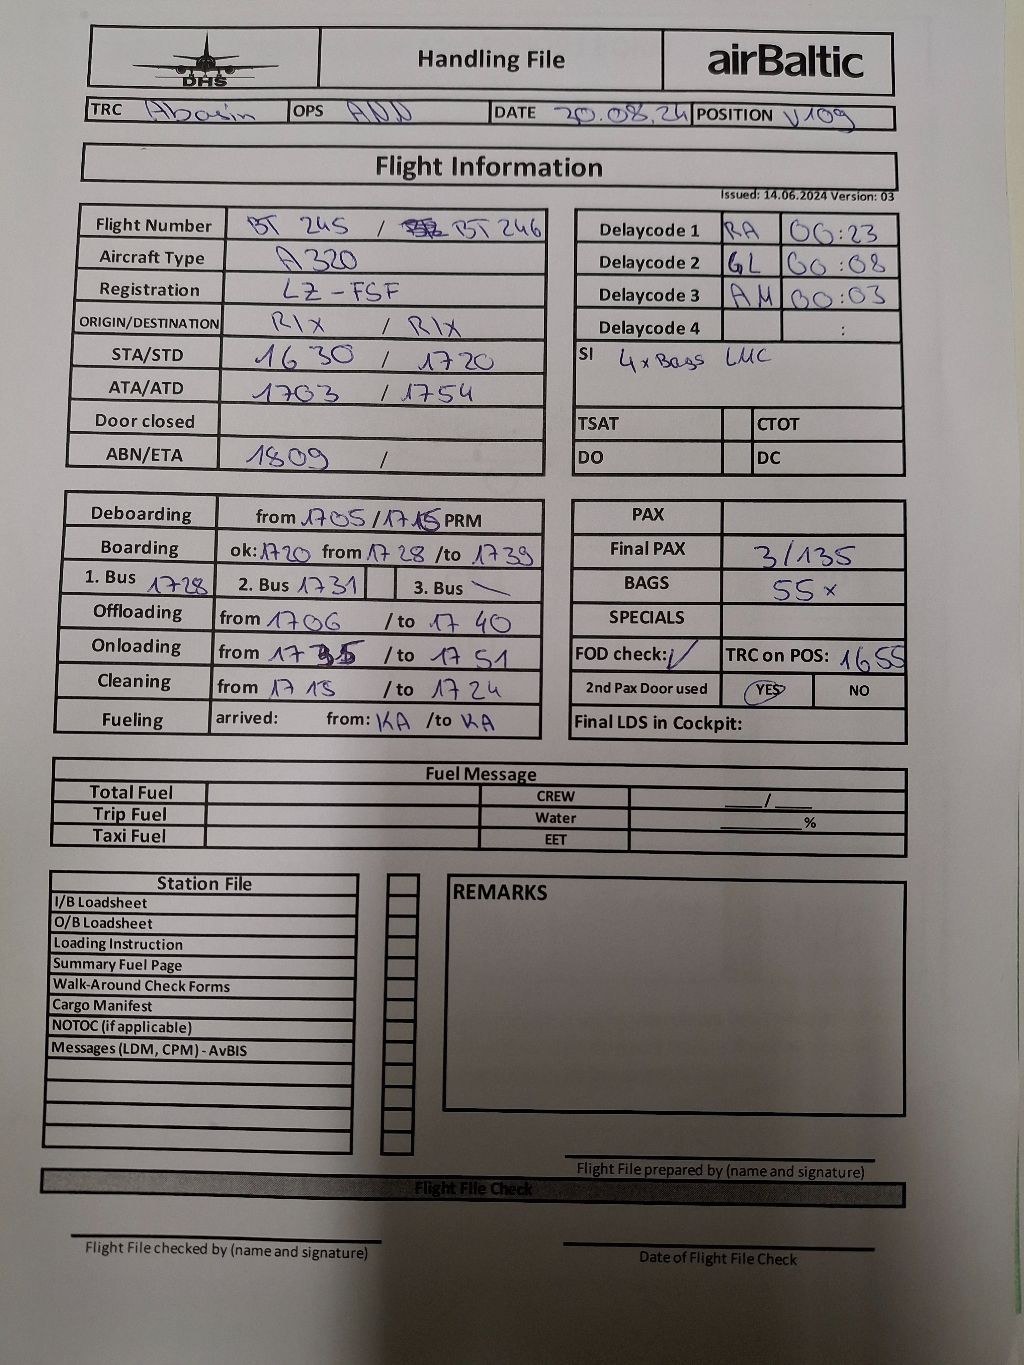 DHS Handling File airBaltic
TRC Abasin OPS ANN DATE 20.08.24 POSITION V109
Flight Information
Issued: 14.06.2024 Version: 03
Flight Number BT 245 / BT 246
Aircraft Type A320
Registration LZ-FSF
ORIGIN/DESTINATION RIX / RIX
STA/STD 1630 / 1720
ATA/ATD 1703 / 1754
Door closed
ABN/ETA 1809 /
Delaycode 1 RA 00:23
Delaycode 2 GL 00:08
Delaycode 3 AM 00:03
Delaycode 4 :
SI 4xBags LMC
TSAT CTOT
DO DC
Deboarding from 1705 / 1715 PRM
Boarding ok: 1720 from 1728 /to 1739
1. Bus 1728 2. Bus 1731 3. Bus \
Offloading from 1706 /to 1740
Onloading from 1735 /to 1751
Cleaning from 1715 /to 1724
Fueling arrived: from: KA /to KA
PAX
Final PAX 3/135
BAGS 55x
SPECIALS
FOD check: ✓ TRC on POS: 1655
2nd Pax Door used YES NO
Final LDS in Cockpit:
Fuel Message
Total Fuel CREW ____/____
Trip Fuel Water ________%
Taxi Fuel EET
Station File
I/B Loadsheet
O/B Loadsheet
Loading Instruction
Summary Fuel Page
Walk-Around Check Forms
Cargo Manifest
NOTOC (if applicable)
Messages (LDM, CPM) - AvBIS
REMARKS
Flight File prepared by (name and signature)
Flight File Check
Flight File checked by (name and signature)
Date of Flight File Check